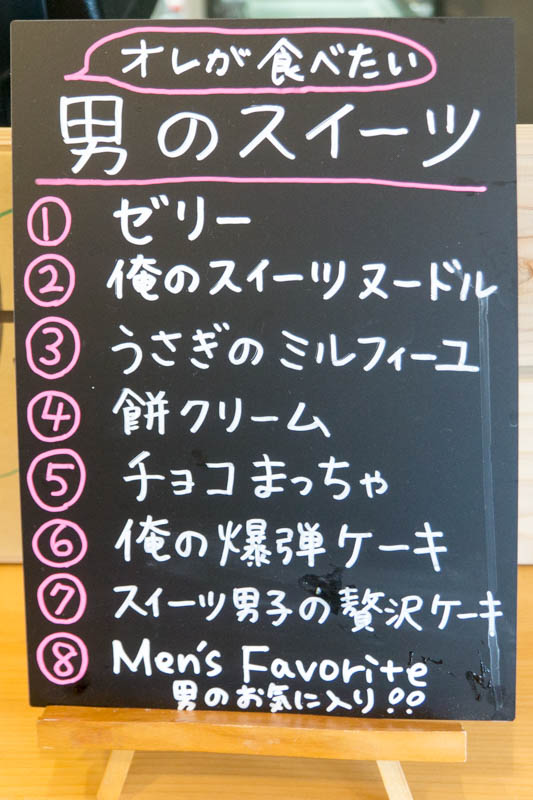 オレが食べたい
男のスイーツ
① ゼリー
② 俺のスイーツヌードル
③ うさぎのミルフィーユ
④ 餅クリーム
⑤ チョコまっちゃ
⑥ 俺の爆弾ケーキ
⑦ スイーツ男子の贅沢ケーキ
⑧ Men's Favorite
男のお気に入り!!